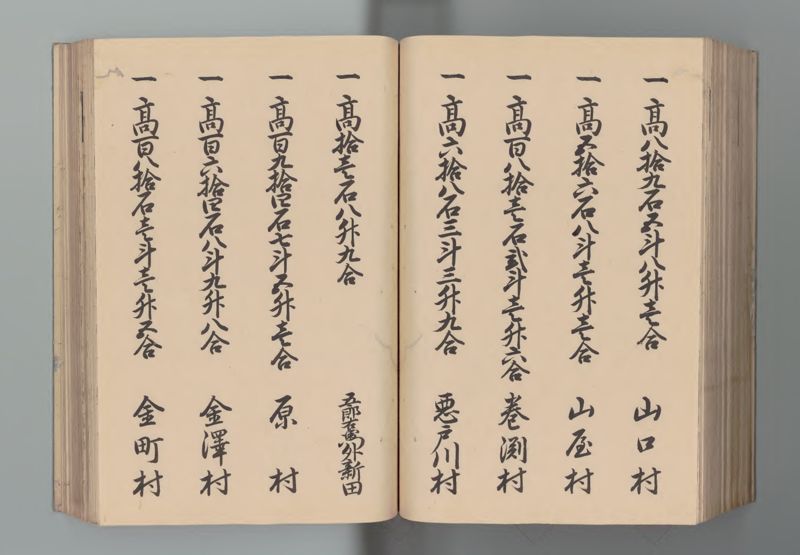 一 高八拾九石五斗八升壱合 山口村
一 高五拾六石八斗壱升壱合 山屋村
一 高百八拾壱石弐斗壱升六合 巻渕村
一 高六拾八石三斗三升九合 悪戸川村
一 高拾壱石八升九合 五郎右衛門外新田
一 高百九拾四石七斗五升壱合 原村
一 高百六拾四石八斗九升八合 金澤村
一 高百八拾石壱斗壱升五合 金町村